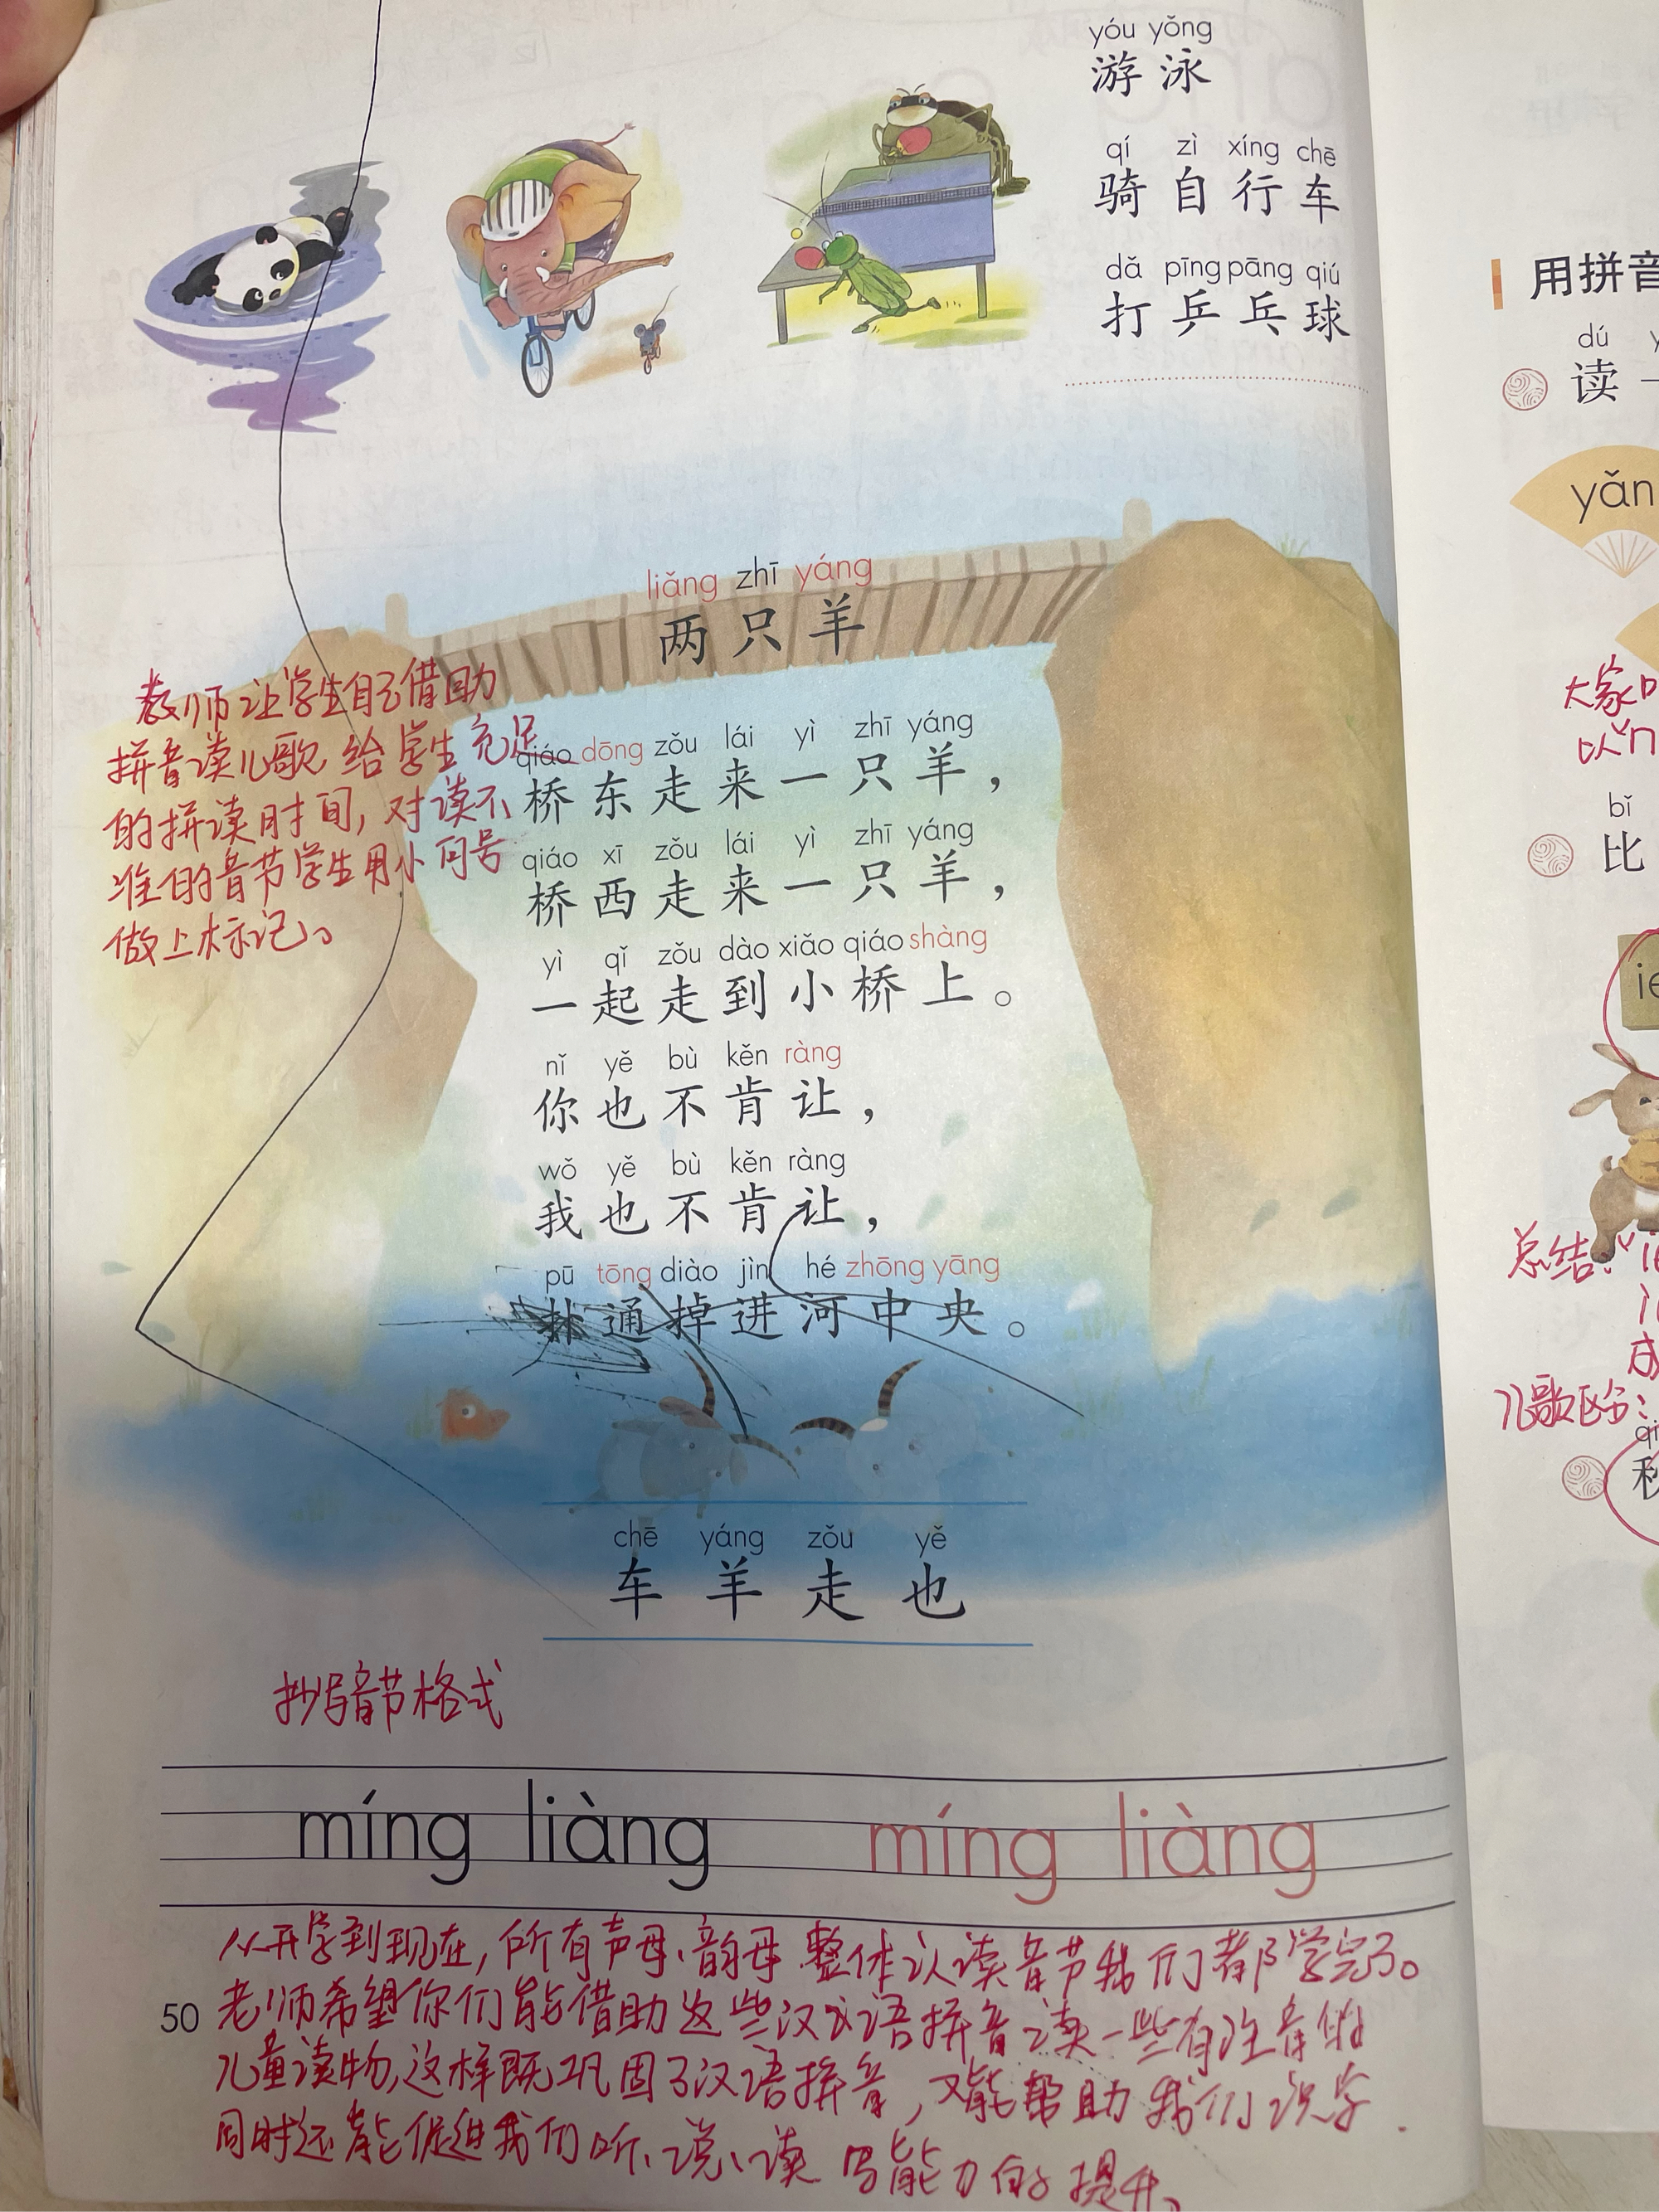 yóu yǒng
游泳
qí zì xíng chē
骑自行车
dǎ pīng pāng qiú
打乒乓球
liǎng zhī yáng
两只羊
教师让学生自己借助
拼音读儿歌 给学生充足
的拼读时间,对读不
准的音节学生用小问号
做上标记。
qiáo dōng zǒu lái yì zhī yáng
桥东走来一只羊,
qiáo xī zǒu lái yì zhī yáng
桥西走来一只羊,
yì qǐ zǒu dào xiǎo qiáo shàng
一起走到小桥上。
nǐ yě bù kěn ràng
你也不肯让,
wǒ yě bù kěn ràng
我也不肯让,
pū tōng diào jìn hé zhōng yāng
扑通掉进河中央。
chē yáng zǒu yě
车羊走也
抄写音节格式
míng liàng míng liàng
从开学到现在,所有声母、韵母、整体认读音节我们都学完了。
老师希望你们能借助这些汉语拼音读一些有注音的
儿童读物,这样既巩固了汉语拼音,又能帮助我们识字
同时还能促进我们听、说、读 写能力的提升、
50
用拼音
dú
读一
yǎn
大家
以"
bǐ
比
ie
总结:"ie
成
儿歌区分:
qi
秋